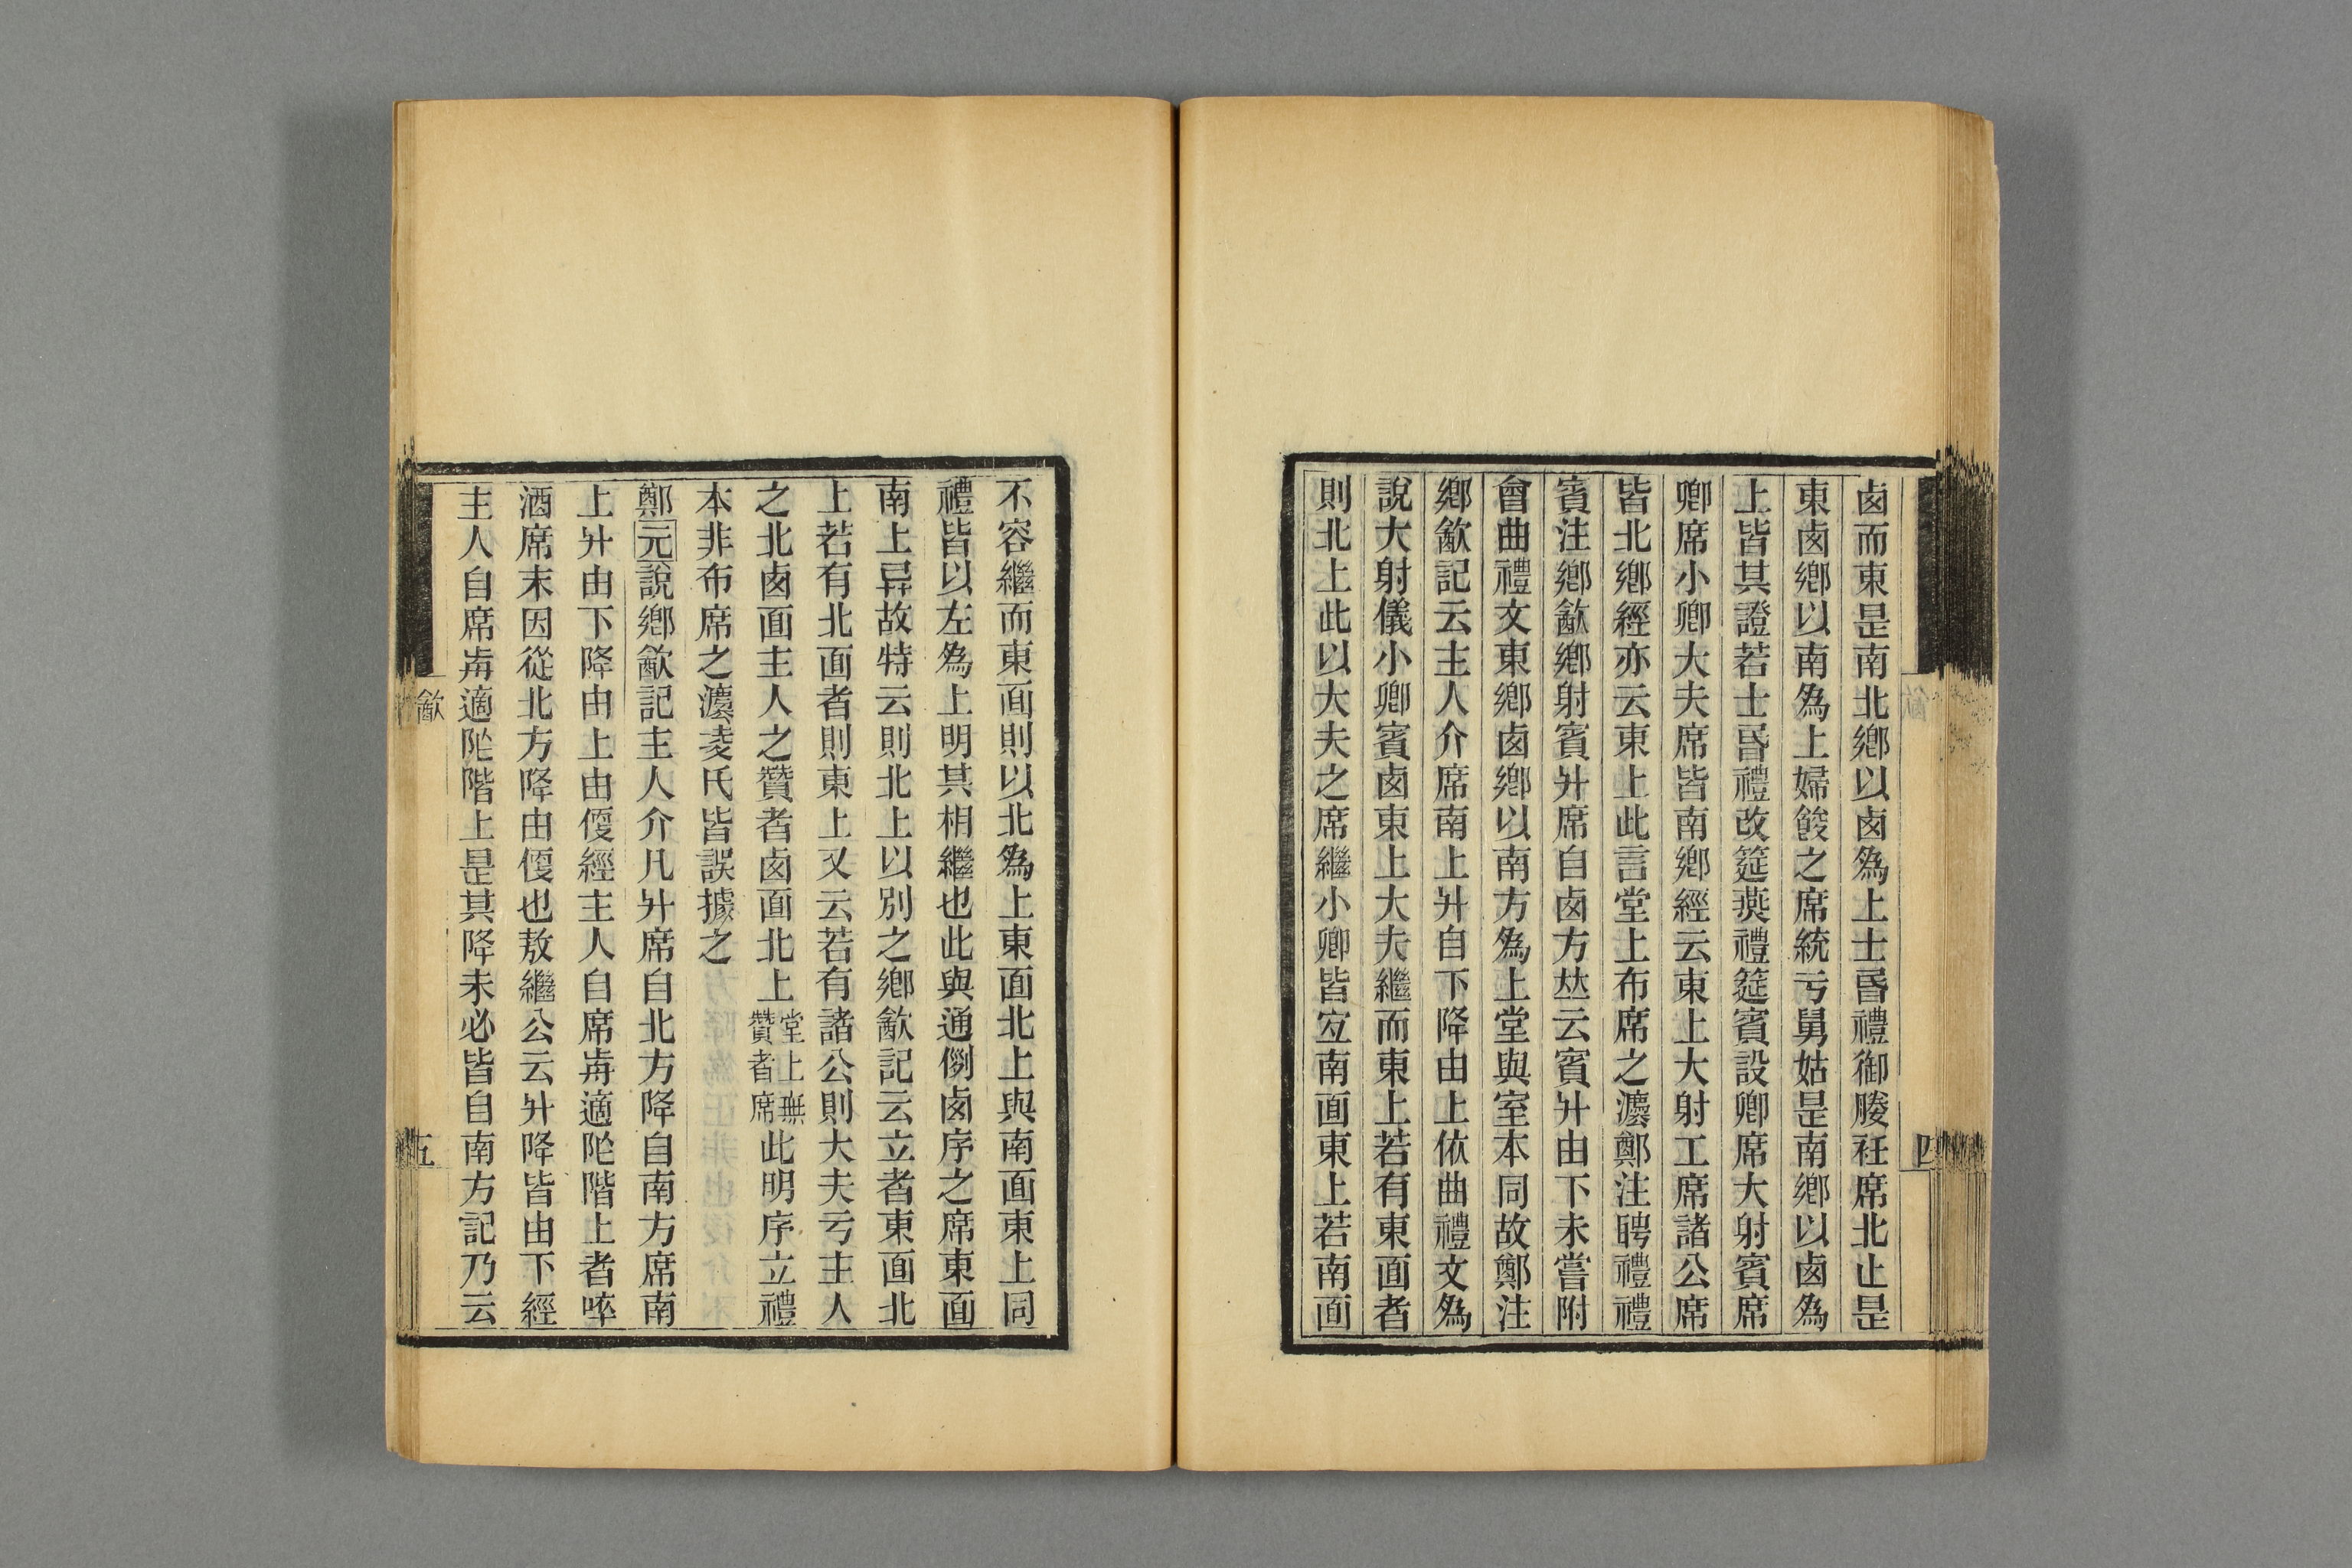 卥而東是南北鄉以卥爲上士昏禮御媵衽席北止是
東卥鄉以南爲上婦餕之席統亏舅姑是南鄉以卥爲
上皆其證若士昏禮改筵燕禮筵賓設卿席大射賓席
卿席小卿大夫席皆南鄉經云東上大射工席諸公席
皆北鄉經亦云東上此言堂上布席之灋鄭注聘禮禮
賓注鄉㱃鄉射賓升席自卥方竝云賓升由下未嘗附
會曲禮文東鄉卥鄉以南方爲上堂與室本同故鄭注
鄉㱃記云主人介席南上升自下降由上依曲禮文爲
說大射儀小卿賓卥東上大夫繼而東上若有東面者
則北上此以大夫之席繼小卿皆宐南面東上若南面
不容繼而東面則以北爲上東面北上與南面東上同
禮皆以左爲上明其相繼也此與通例卥序之席東面
南上异故特云則北上以別之鄉㱃記云立者東面北
上若有北面者則東上又云若有諸公則大夫亏主人
之北卥面主人之贊者卥面北上堂上無贊者席此明序立禮
本非布席之灋凌氏皆誤據之
鄭元說鄉㱃記主人介凡升席自北方降自南方席南
上升由下降由上由便經主人自席歬適阼階上者啐
酒席末因從北方降由便也敖繼公云升降皆由下經
主人自席歬適阼階上是其降未必皆自南方記乃云
㱃
五
㱃
四